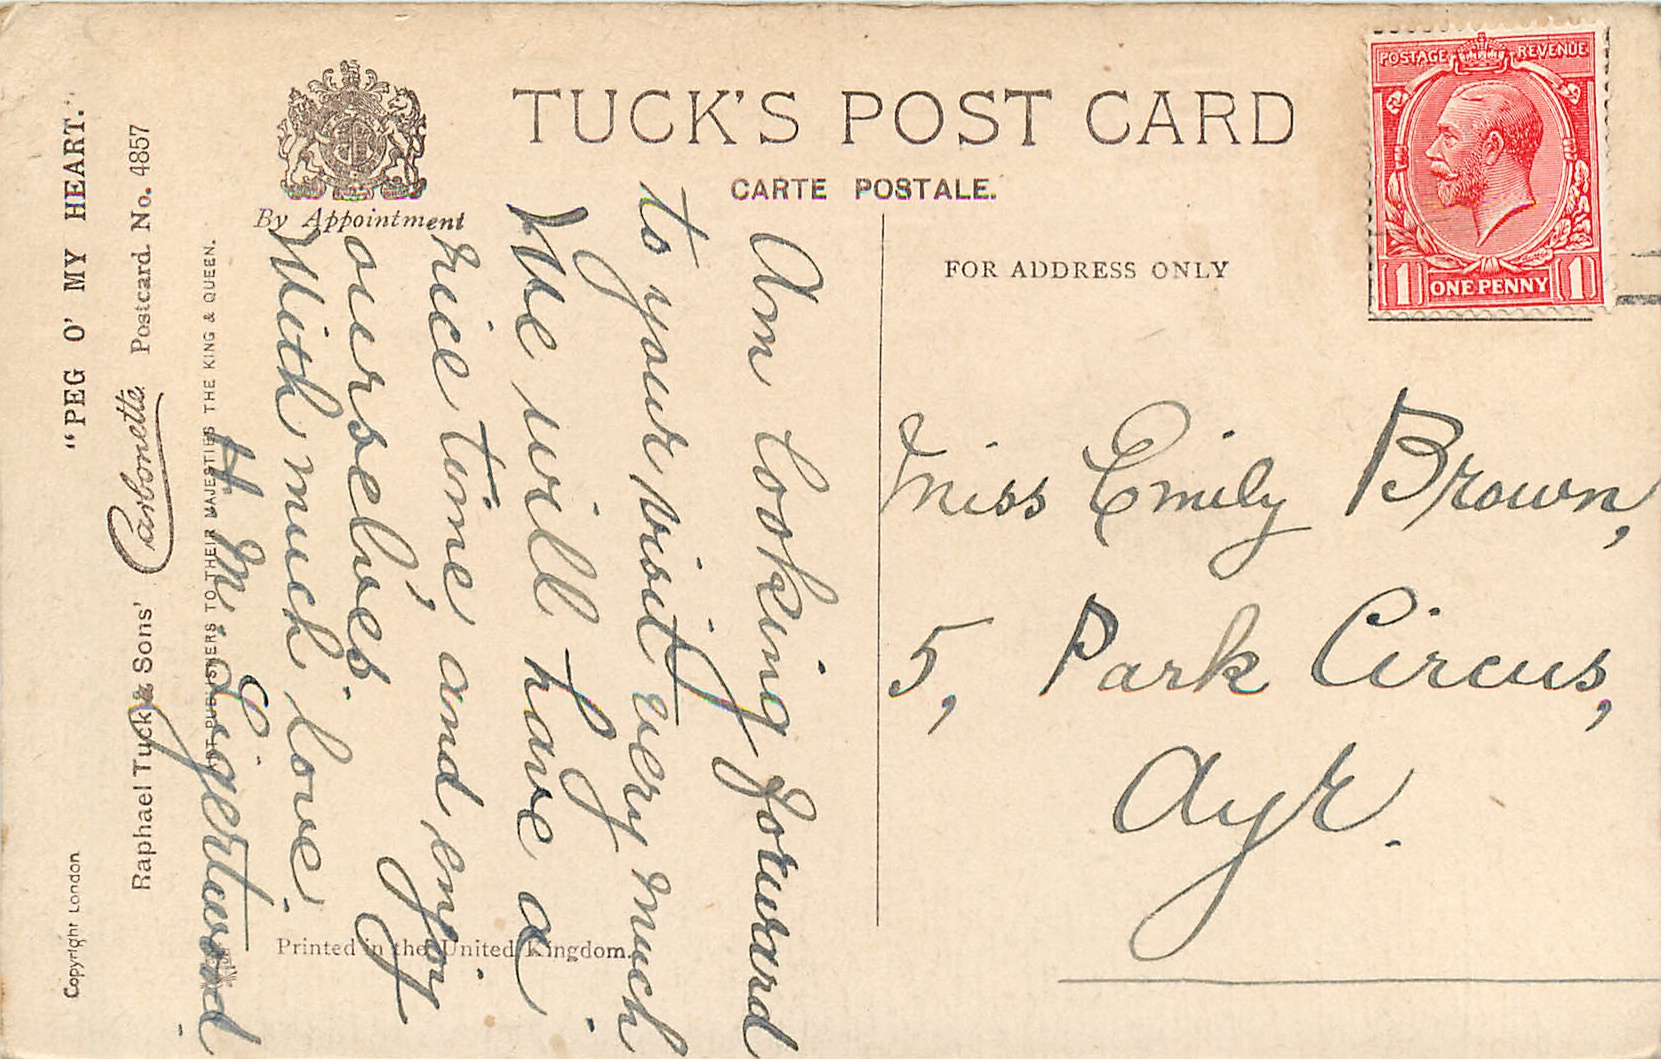 TUCK'S POST CARD
CARTE POSTALE.
By Appointment
FOR ADDRESS ONLY
POSTAGE REVENUE
1 ONE PENNY 1
"PEG O' MY HEART."
Raphael Tuck & Sons' Carbonette Postcard No. 4857
ART PUBLISHERS TO THEIR MAJESTIES THE KING & QUEEN.
Copyright London
Printed in the United Kingdom.
Am looking forward
to your visit very much.
We will have a
nice time, and enjoy
ourselves.
With much love.
H. M. Ligertwood.
Miss Emily Brown,
5, Park Circus,
Ayr.